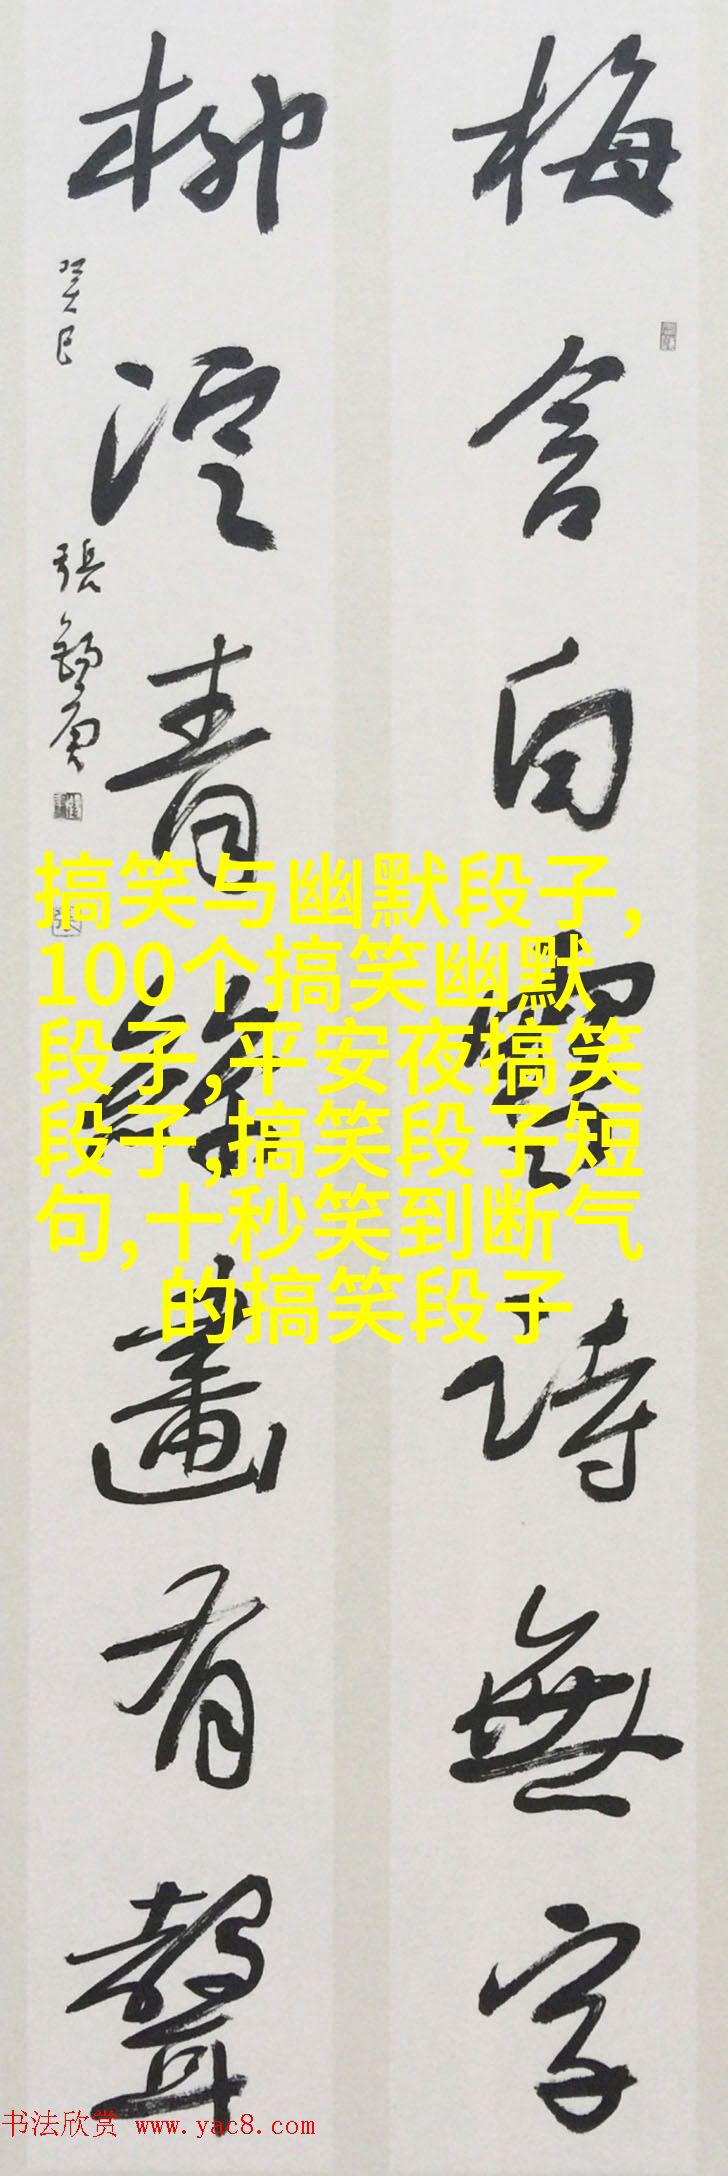 梅含白雪詩無字
柳浞青絲畫有聲
癸巳
張錫庚
搞笑与幽默段子,
100个搞笑幽默
段子,平安夜搞笑
段子,搞笑段子短
句,十秒笑到断气
的搞笑段子
书法欣赏 www.yac8.com